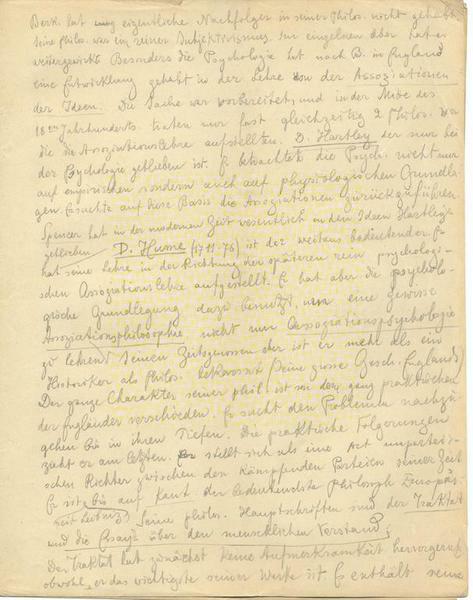 Berk. hat eigentliche Nachfolger in seiner Philos. nicht gehabt.
Seine Philos. war ein reiner Subjektivismus. Im einzelnen aber hat er
weitergewirkt. Besonders die Psychologie hat nach B. in England
eine Entwicklung gehabt in der Lehre von der Assoziationen
der Ideen. Die Sache war vorbereitet, und in der Mitte des
18ten Jahrhunderts traten nur fast gleichzeitig 2 Philos.
die die Assoziationslehre aufstellten. D. Hartley der nur bei
der Psychologie geblieben ist. E betrachtete die Psych. nicht nur
auf empirischen sondern auch auf physiologischen Grundla
gen. Er suchte auf diese Basis die Assoziationen zurückzuführen.
Spencer hat in der modernen Zeit wesentlich an den Ideen Hartleys
D. Hume (1711-76) ist der weitaus bedeutender. E
hat seine Lehre in der Richtung der späteren rein psychologi-
schen Assoziationslehre aufgestellt. E hat aber die psycholo-
gische Grundlegung dazu benutzt, um eine gewisse
Assoziationsphilosophie nicht nur Assoziationspsychologie
zu lehren. Seinen Zeitgenossen ist er mehr als ein
Historiker als Philos. bekannt. Seine grosse Gesch. Englands
Der ganze Charakter seiner phil. ist von dem ganz praktischen
der Engländer verschieden. E sucht den Problemen nachzu
gehen bis in ihren Tiefen. Die praktische Folgerungen
zieht er am letzten. Er stellt sich als eine Art unparteii-
schen Richter zwischen den kämpfenden Parteien seiner Zeit
Er ist bis auf Kant der bedeutendste Philosoph Europas
seit Leibniz. Seine philos. Hauptschriften sind der Traktat
und die Essays über den menschlichen Verstand.
Der Traktat hat zunächst keine Aufmerksamkeit hervorgeruf
obwohl er das wichtigste seiner Werke ist. E enthält seine